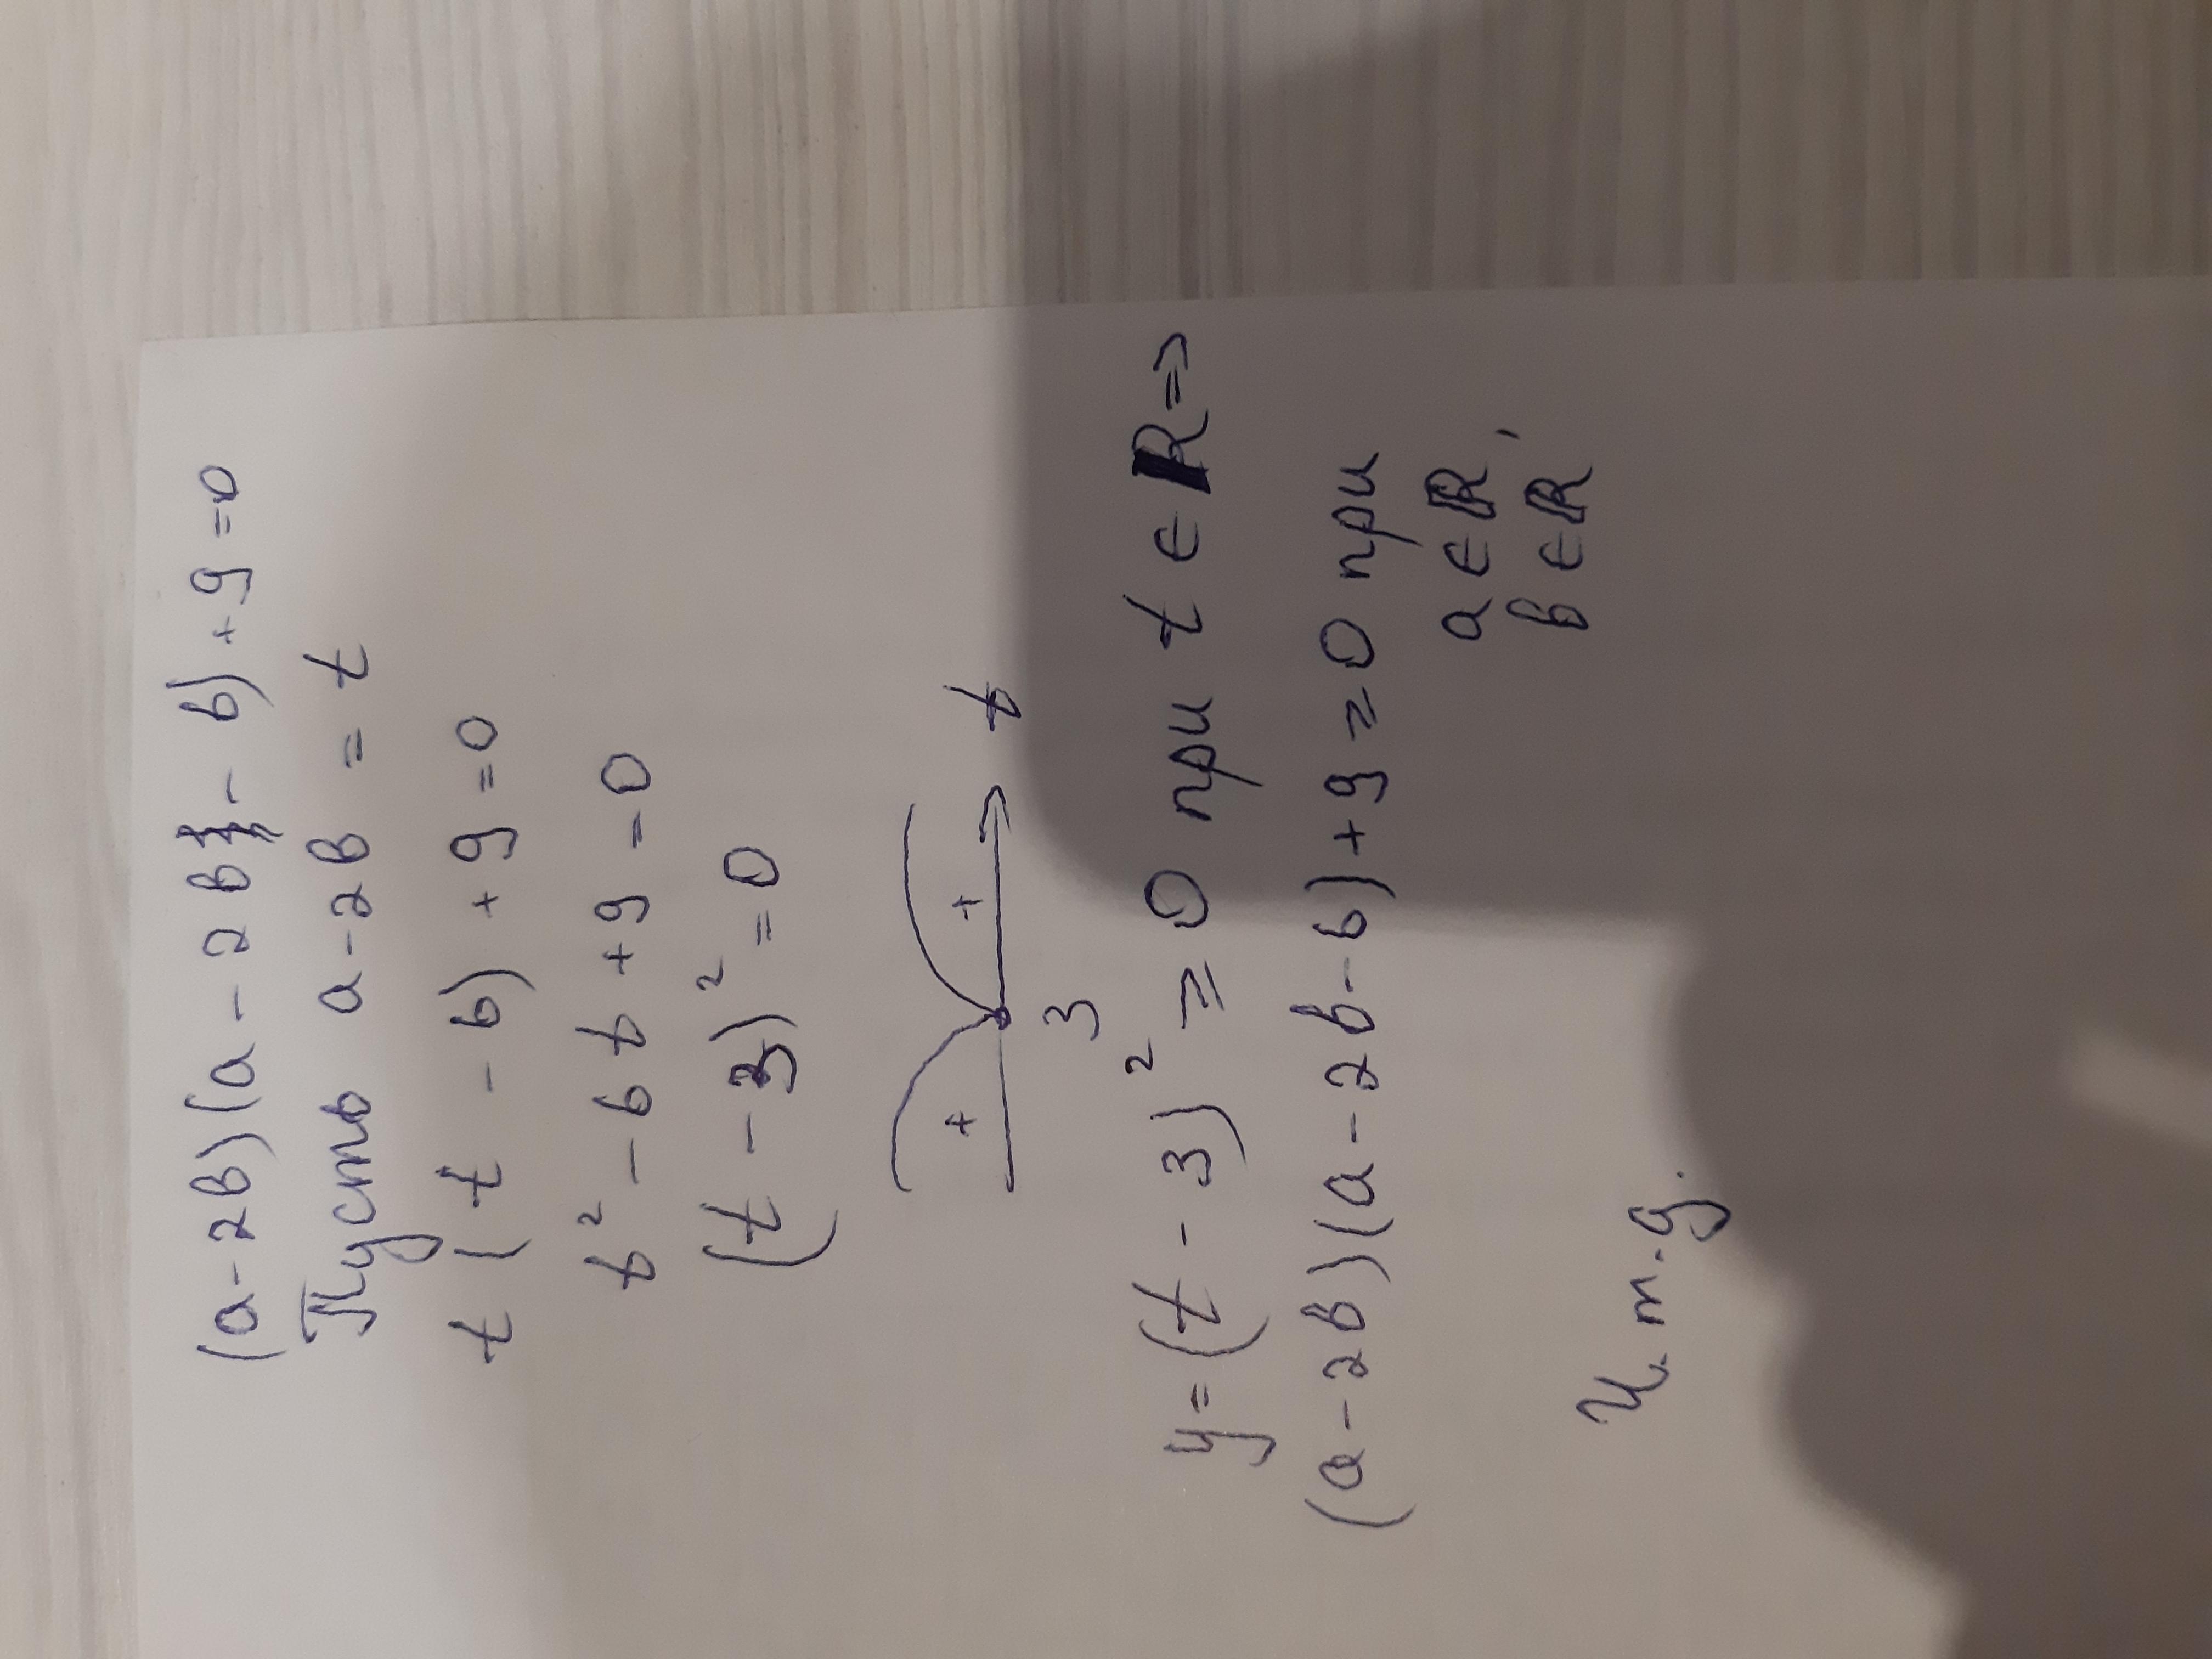 (a-2b)(a-2b-6)+9=0
Пусть a-2b = t
t(t-6)+9=0
t²-6t+9=0
(t-3)²=0
+ + t
3
y=(t-3)² ≥ 0 при t ∈ R ⇒
(a-2b)(a-2b-6)+9 ≥ 0 при
a ∈ R,
b ∈ R
ч.т.д.